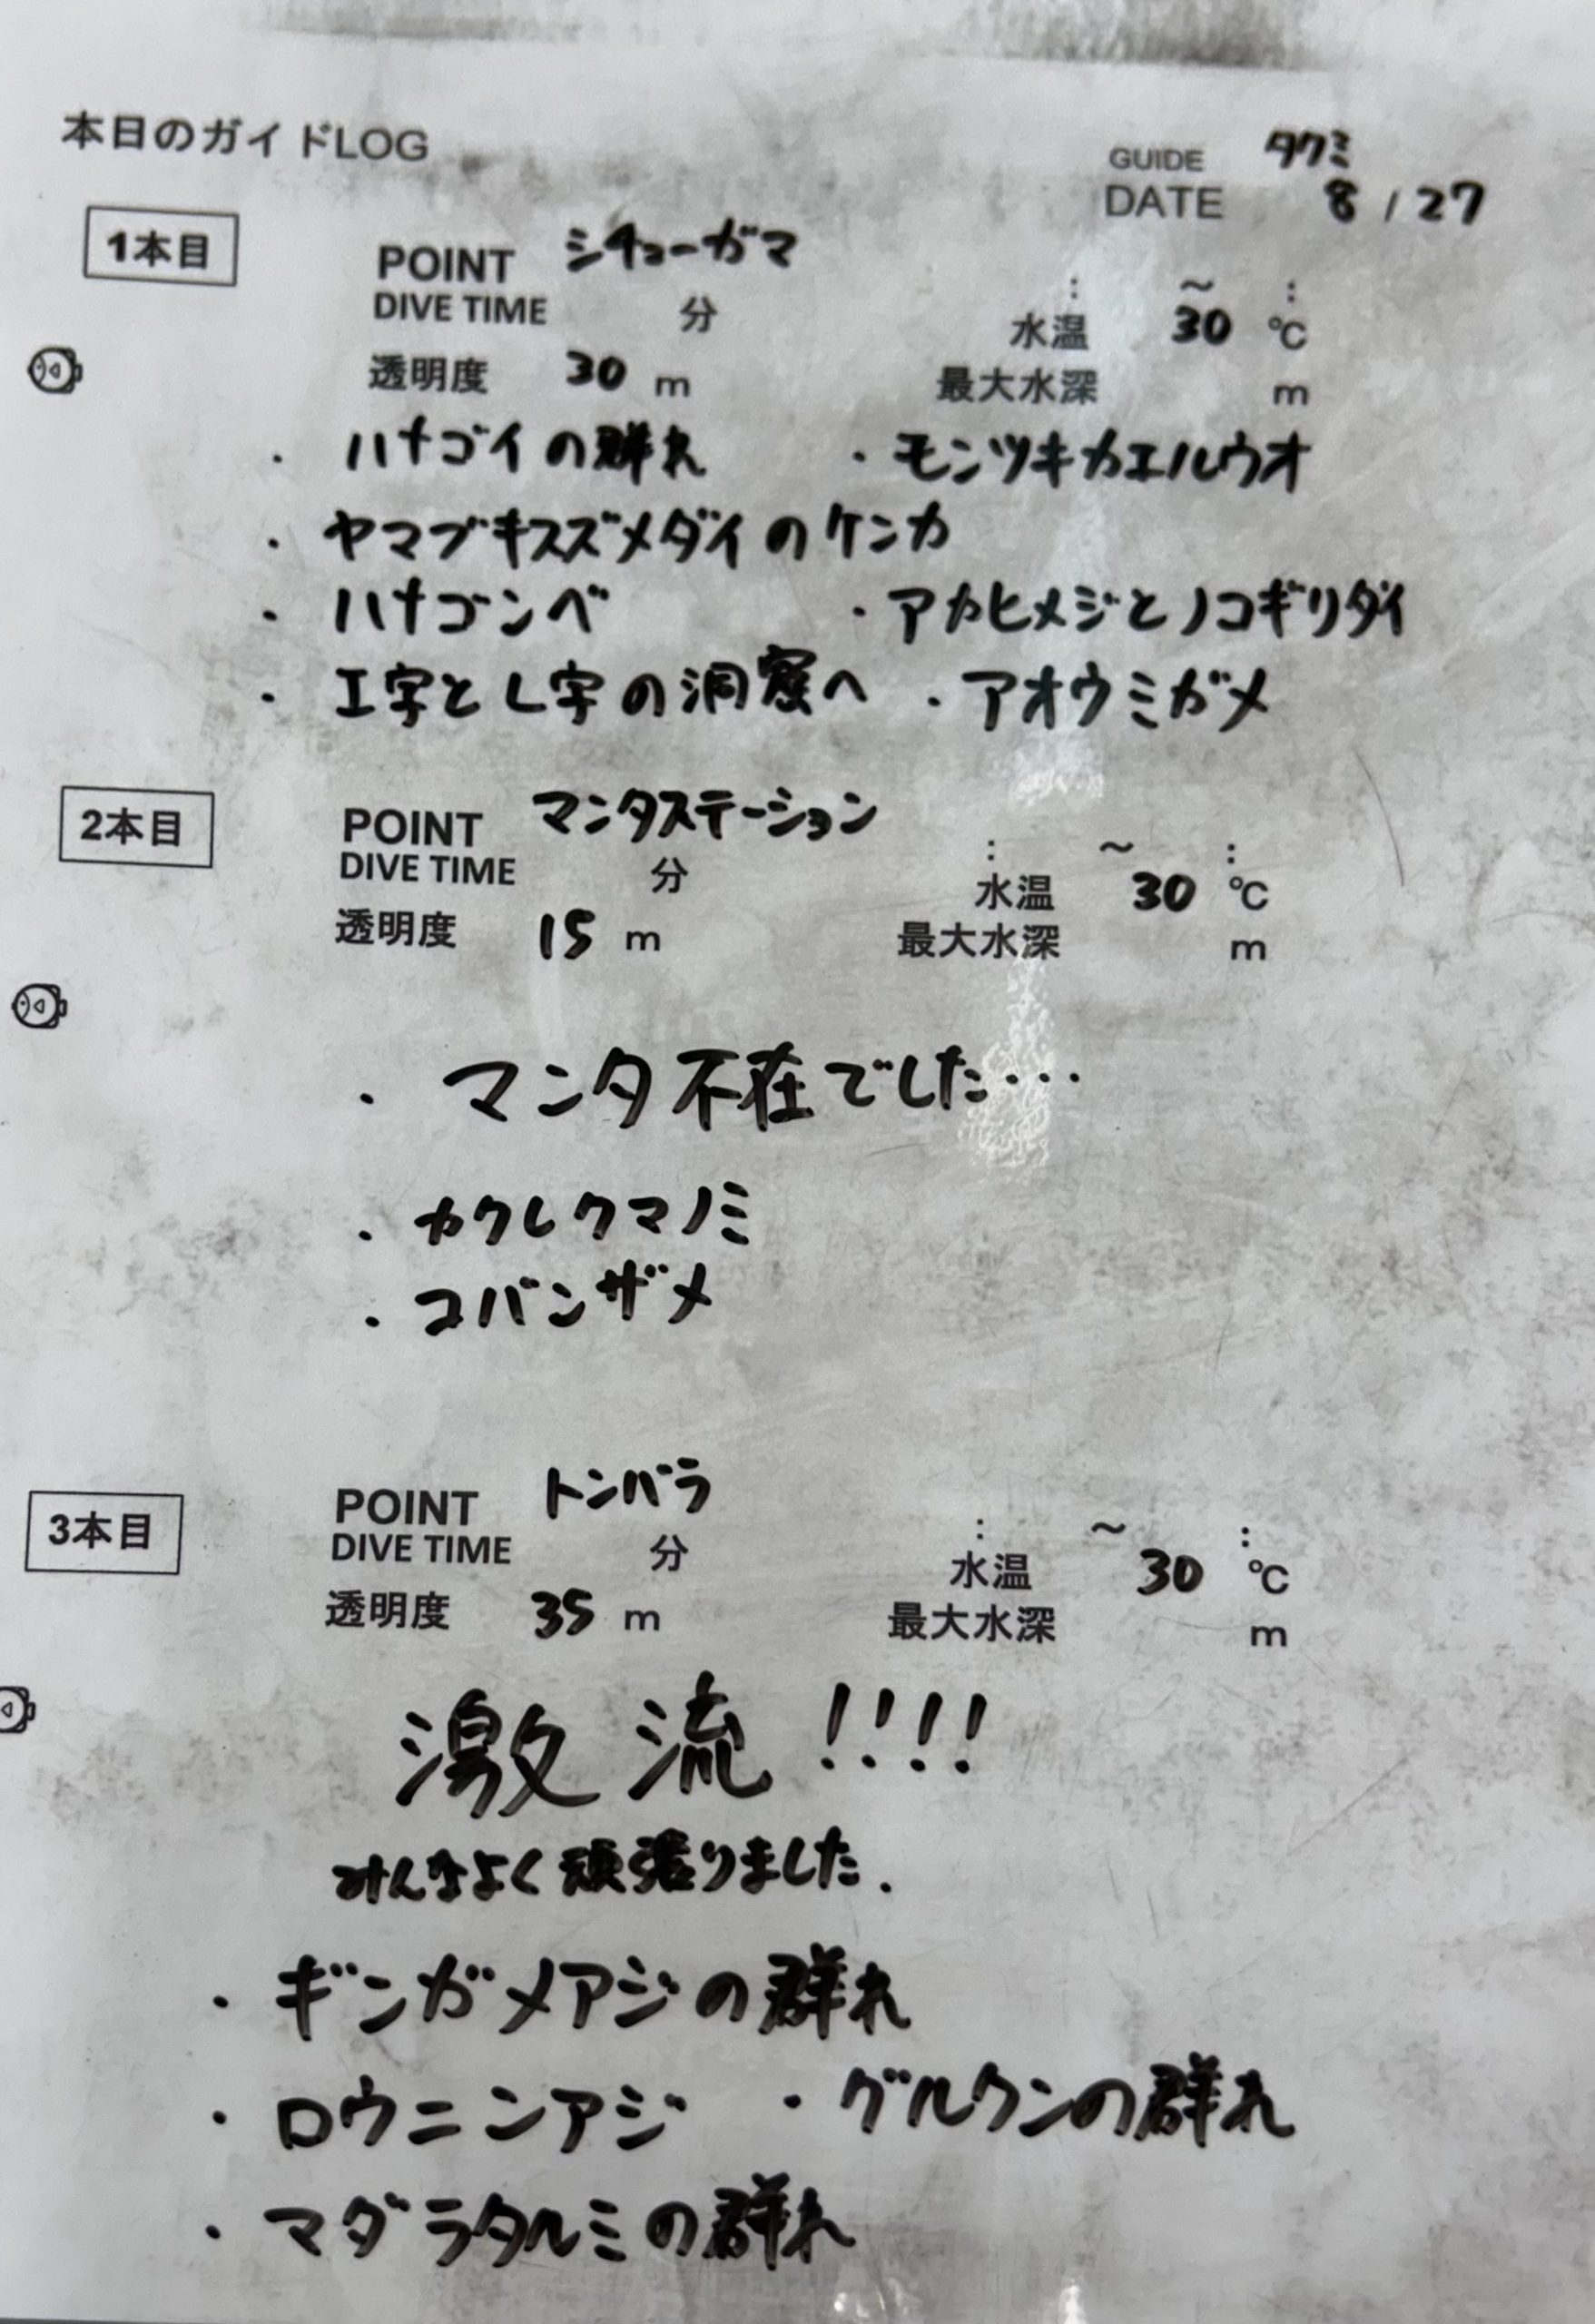 本日のガイドLOG
GUIDE タクミ
DATE 8 / 27
1本目
POINT シチューガマ
: ～ :
DIVE TIME 分 水温 30 ℃
透明度 30 m 最大水深 m
・ ハナゴイの群れ ・モンツキカエルウオ
・ ヤマブキスズメダイのケンカ
・ ハナゴンベ ・アカヒメジとノコギリダイ
・ 工字とL字の洞窟へ ・アオウミガメ
2本目
POINT マンタステーション
: ～ :
DIVE TIME 分 水温 30 ℃
透明度 15 m 最大水深 m
・ マンタ不在でした…
・ カクレクマノミ
・ コバンザメ
3本目
POINT トンバラ
: ～ :
DIVE TIME 分 水温 30 ℃
透明度 35 m 最大水深 m
激流!!!!
みんなよく頑張りました.
・ ギンガメアジの群れ
・ ロウニンアジ ・グルクンの群れ
・ マダラタルミの群れ